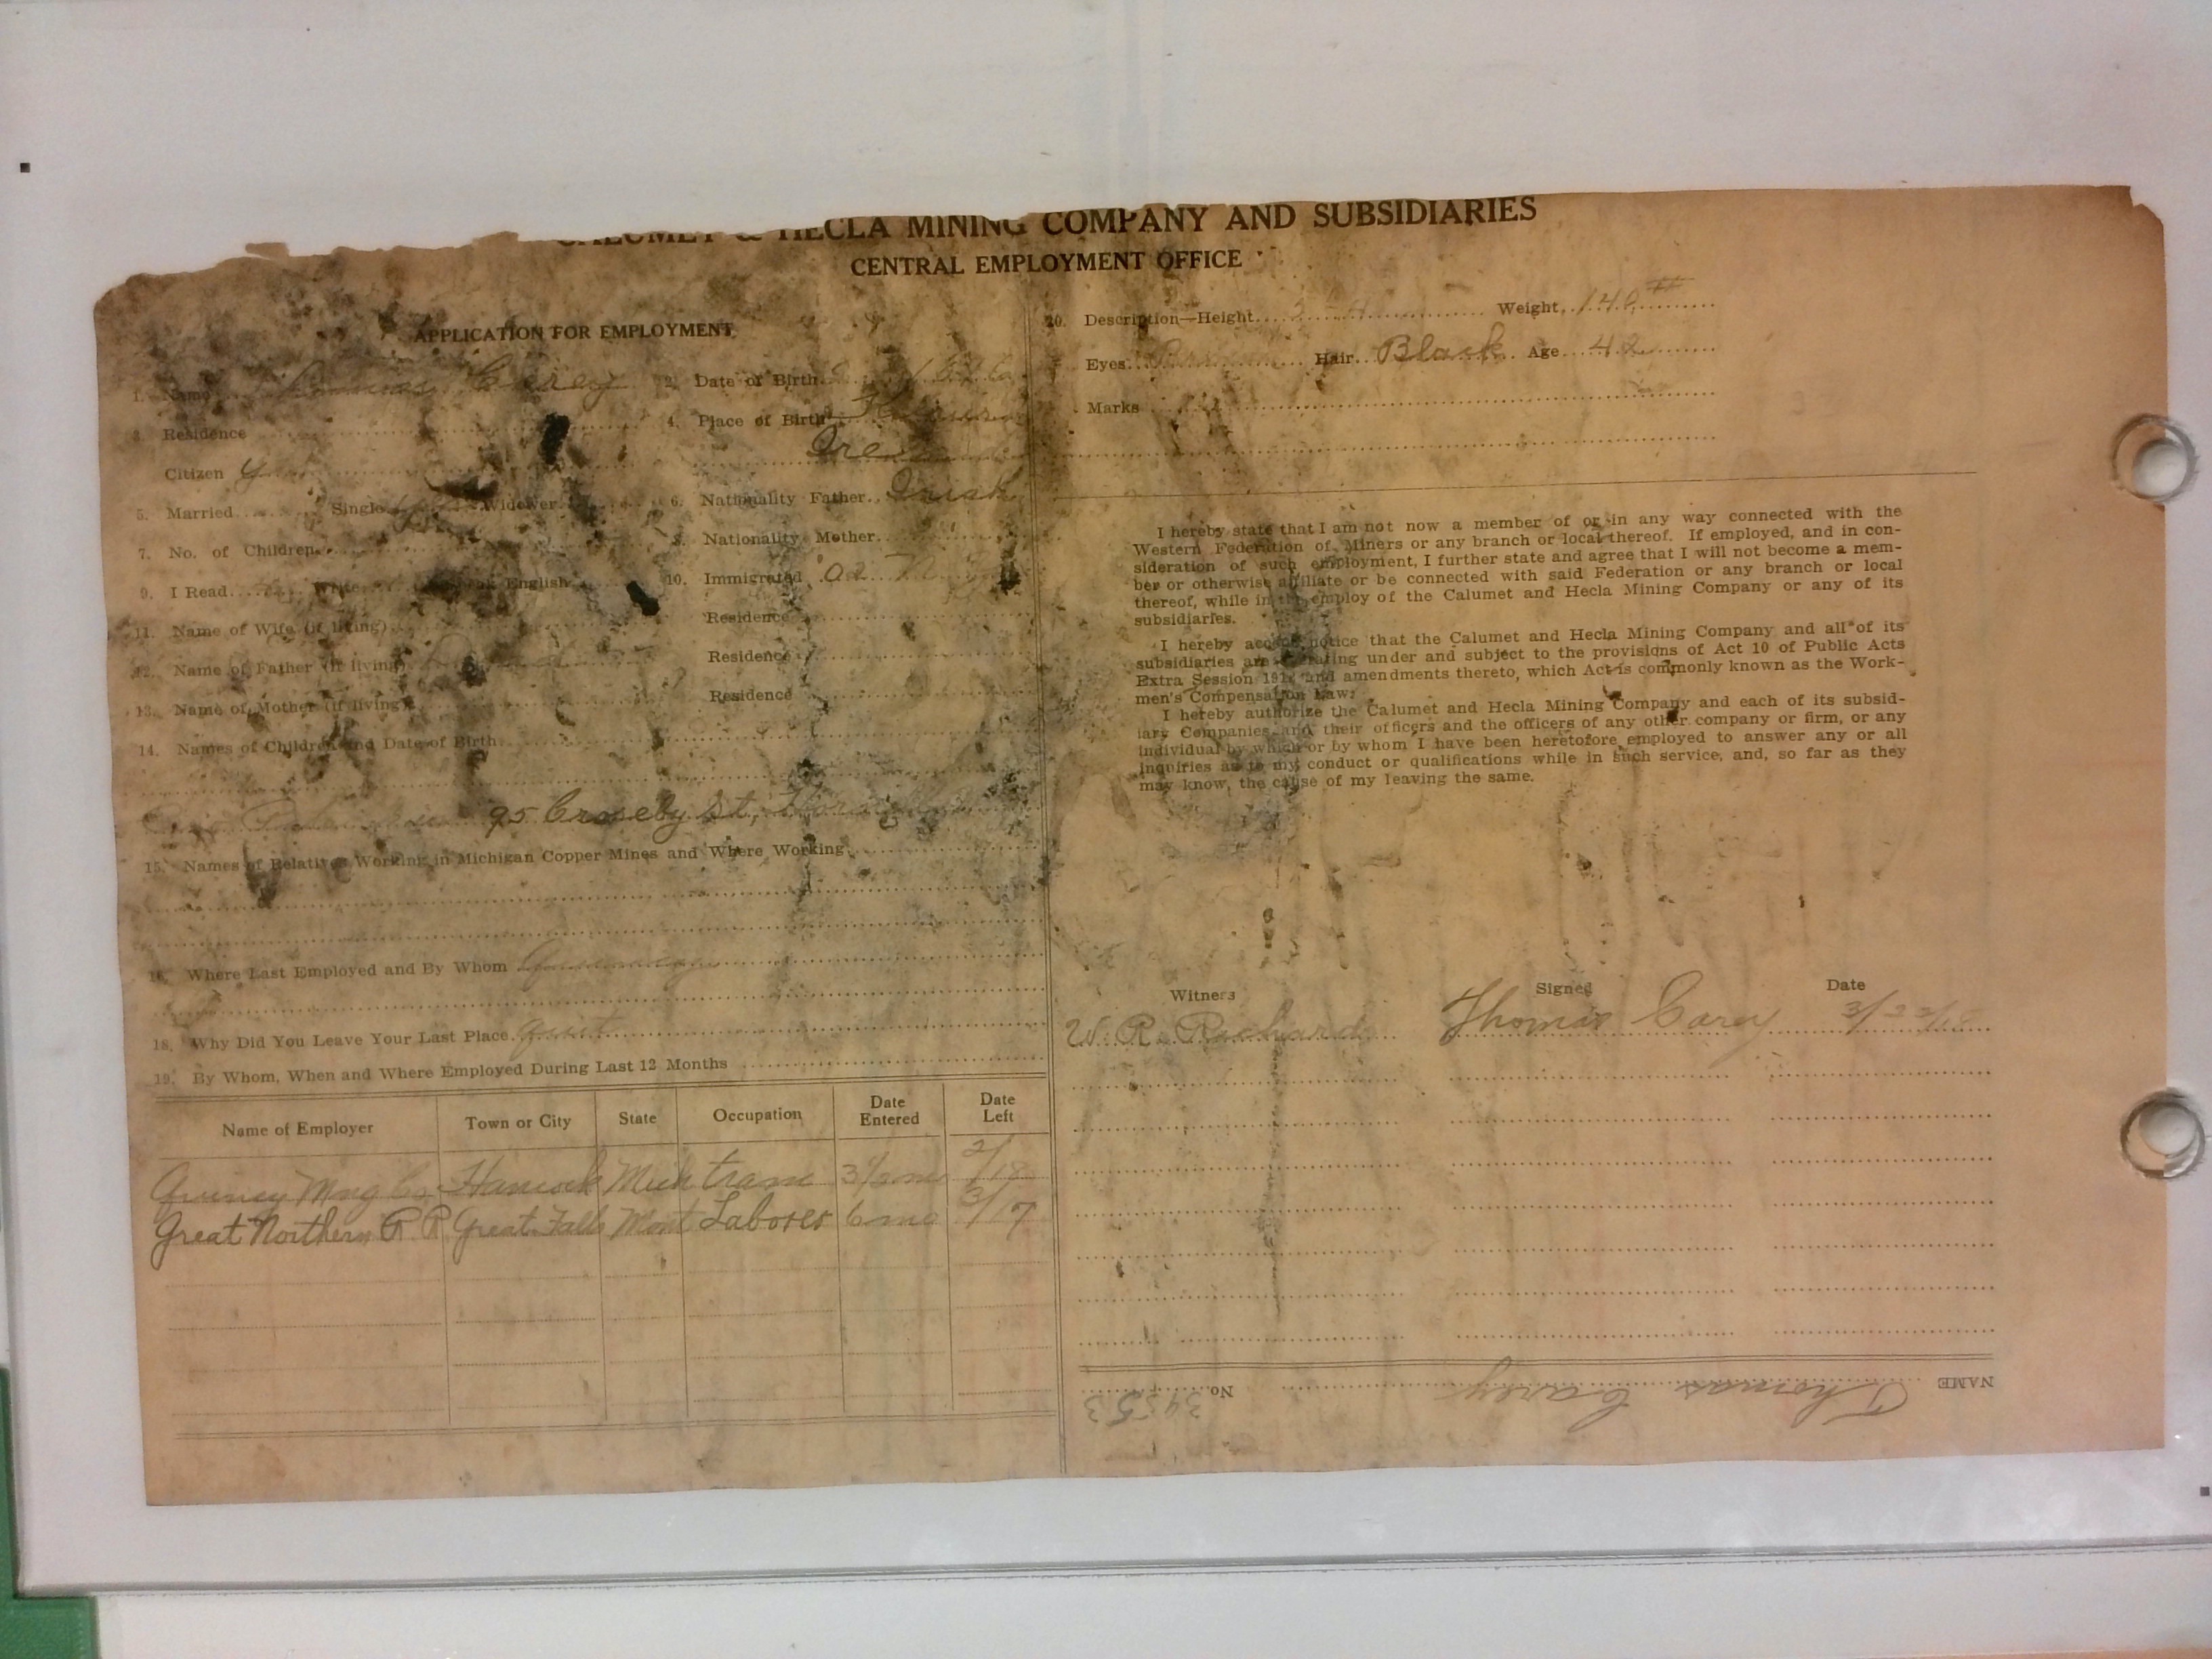 CALUMET & HECLA MINING COMPANY AND SUBSIDIARIES
CENTRAL EMPLOYMENT OFFICE
APPLICATION FOR EMPLOYMENT
1. Name Thomas Carey 2. Date of Birth
3. Residence 4. Place of Birth
Citizen
5. Married Single Widower 6. Nationality Father Irish
7. No. of Children 8. Nationality Mother
9. I Read Write Speak English 10. Immigrated '02
11. Name of Wife (if living) Residence
12. Name of Father (if living) Residence
13. Name of Mother (if living) Residence
14. Names of Children and Date of Birth
95 Croseby St,
15. Names of Relatives Working in Michigan Copper Mines and Where Working
16. Where Last Employed and By Whom Quincy
18. Why Did You Leave Your Last Place quit
19. By Whom, When and Where Employed During Last 12 Months
Name of Employer Town or City State Occupation Date Entered Date Left
Quincy Mng Co Hancock Mich tram 3 1/2 mo 2/18
Great Northern R R Great Falls Mont Laborer 6 mo 3/17
20. Description—Height Weight 140 #
Eyes Hair Black Age 42
Marks
I hereby state that I am not now a member of or in any way connected with the
Western Federation of Miners or any branch or local thereof. If employed, and in con-
sideration of such employment, I further state and agree that I will not become a mem-
ber or otherwise affiliate or be connected with said Federation or any branch or local
thereof, while in the employ of the Calumet and Hecla Mining Company or any of its
subsidiaries.
I hereby accept notice that the Calumet and Hecla Mining Company and all of its
subsidiaries are operating under and subject to the provisions of Act 10 of Public Acts
Extra Session and amendments thereto, which Act is commonly known as the Work-
men's Compensation Law:
I hereby authorize the Calumet and Hecla Mining Company and each of its subsid-
iary Companies and their officers and the officers of any other company or firm, or any
individual by which or by whom I have been heretofore employed to answer any or all
inquiries as to my conduct or qualifications while in such service, and, so far as they
may know, the cause of my leaving the same.
Witness Signed Date
W. R. Richard Thomas Carey 3/23/18
NAME Thomas Carey No. 39553